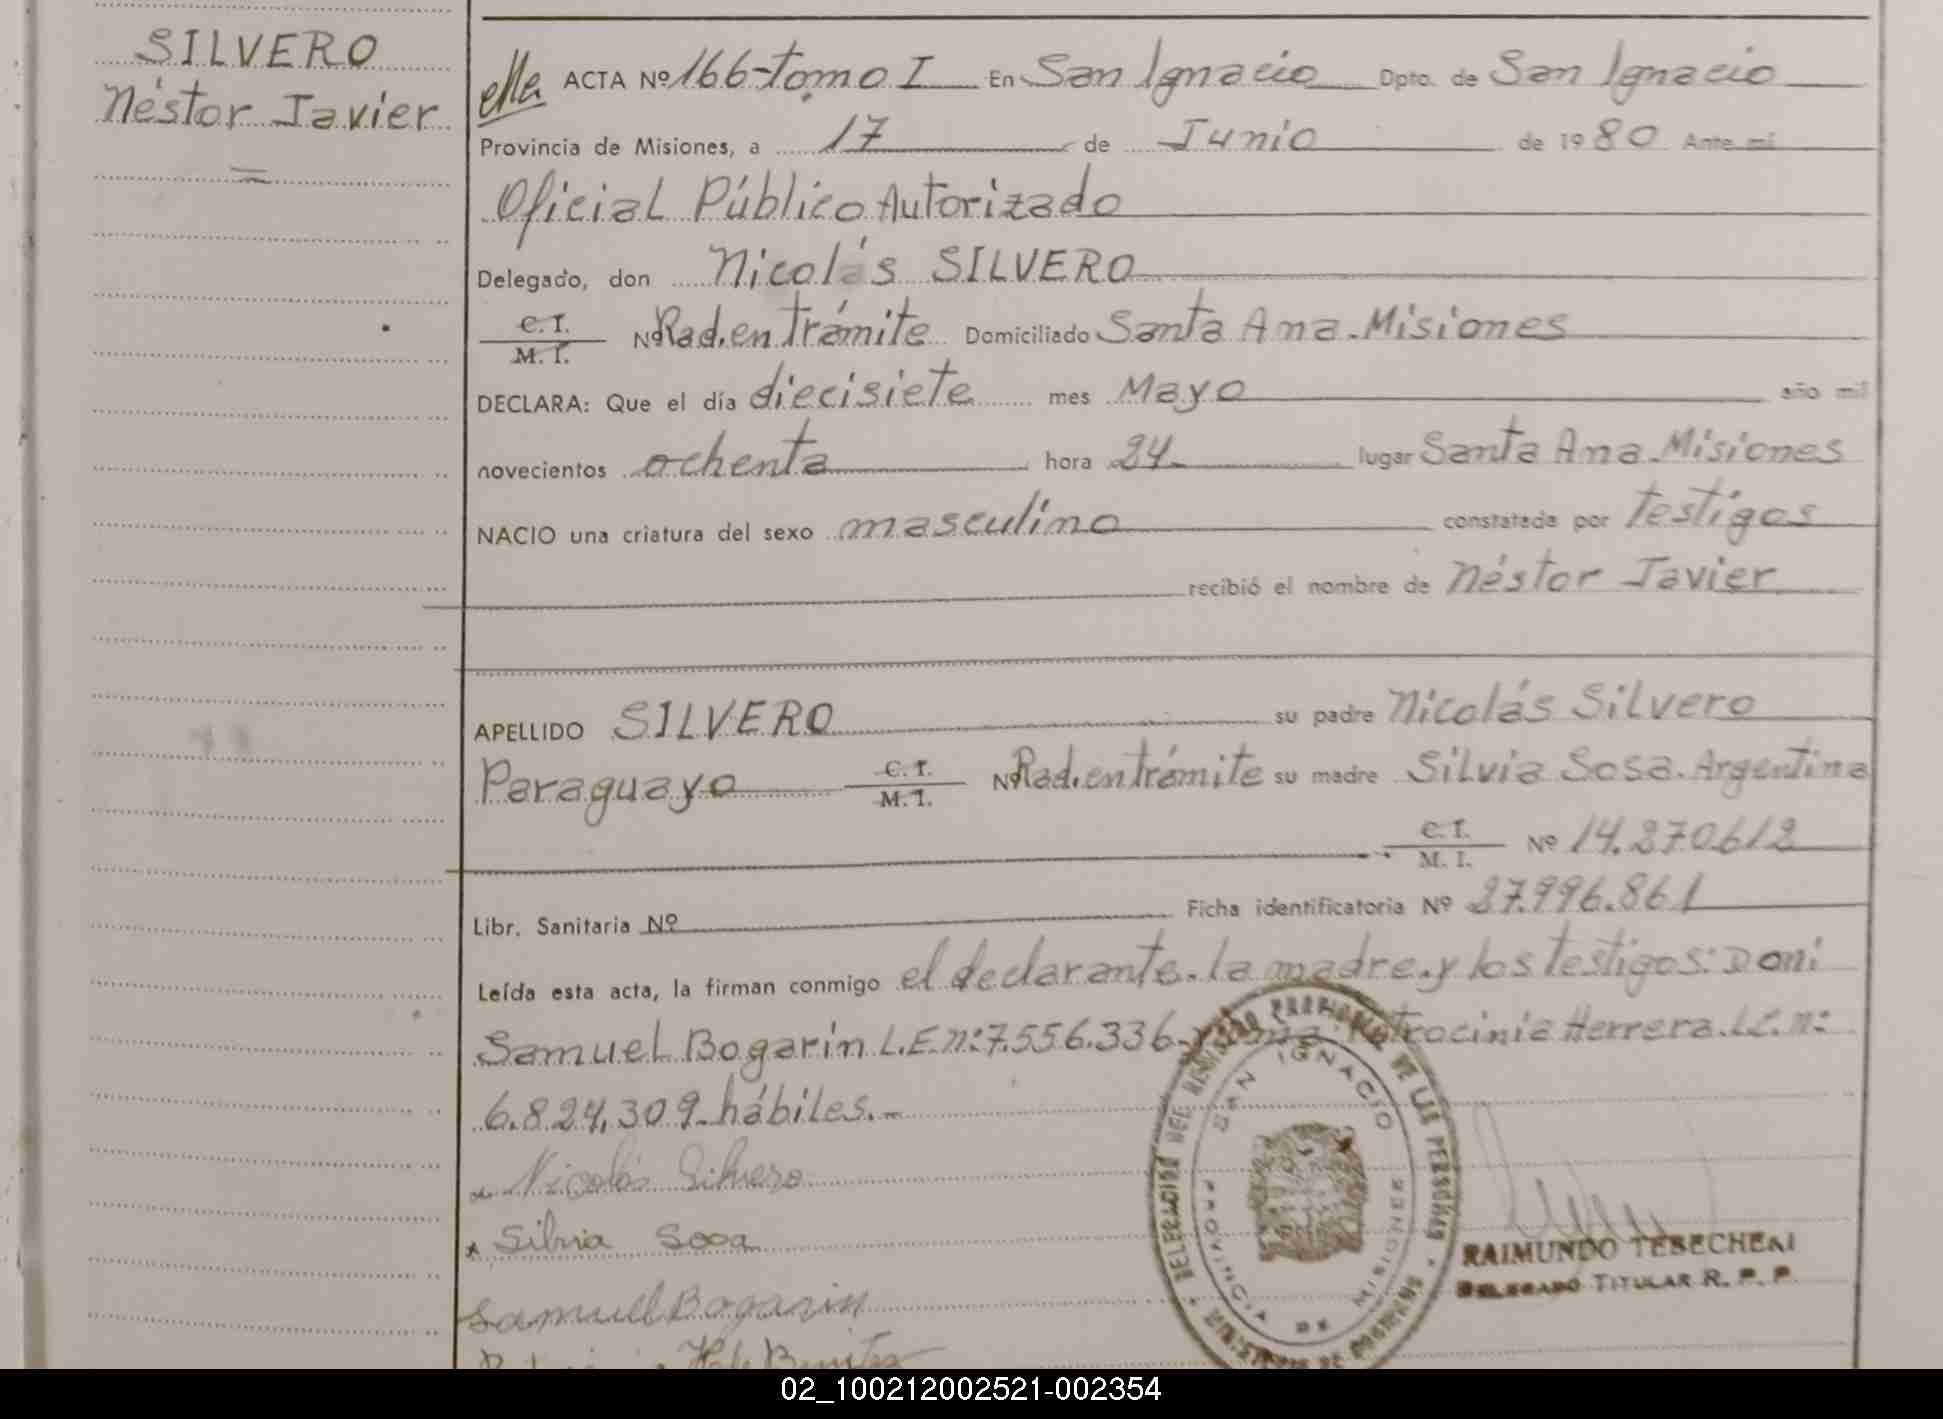 SILVERO
Néstor Javier
ella ACTA Nº 166-tomo I En San Ignacio Dpto. de San Ignacio
Provincia de Misiones, a 17 de Junio de 1980 Ante mi
Oficial Público Autorizado
Delegado, don Nicolás SILVERO
C.I.
M.I. Nº Rad. en trámite Domiciliado Santa Ana. Misiones
DECLARA: Que el día diecisiete mes Mayo año mil
novecientos ochenta hora 24 lugar Santa Ana. Misiones
NACIO una criatura del sexo masculino constatada por testigos
recibió el nombre de Néstor Javier
APELLIDO SILVERO su padre Nicolás Silvero
Paraguayo C.I. M.I. Nº Rad. en trámite su madre Silvia Sosa. Argentina
C.I.
M.I. Nº 14.270.612
Libr. Sanitaria Nº Ficha identificatoria Nº 27.996.861
Leída esta acta, la firman conmigo el declarante. la madre. y los testigos: Don:
Samuel Bogarin L.E.n:7.556.336- Patrocinia Herrera. L.C. n:
6.824.309- hábiles.-
Nicolás Silvero
Silvia Sosa
Samuel Bogarin
Benitez
DELEGACION DEL REGISTRO PROVINCIAL DE LAS PERSONAS
SAN IGNACIO
PROVINCIA DE MISIONES
RAIMUNDO TEBECHERI
DELEGADO TITULAR R. P. P.
02_100212002521-002354